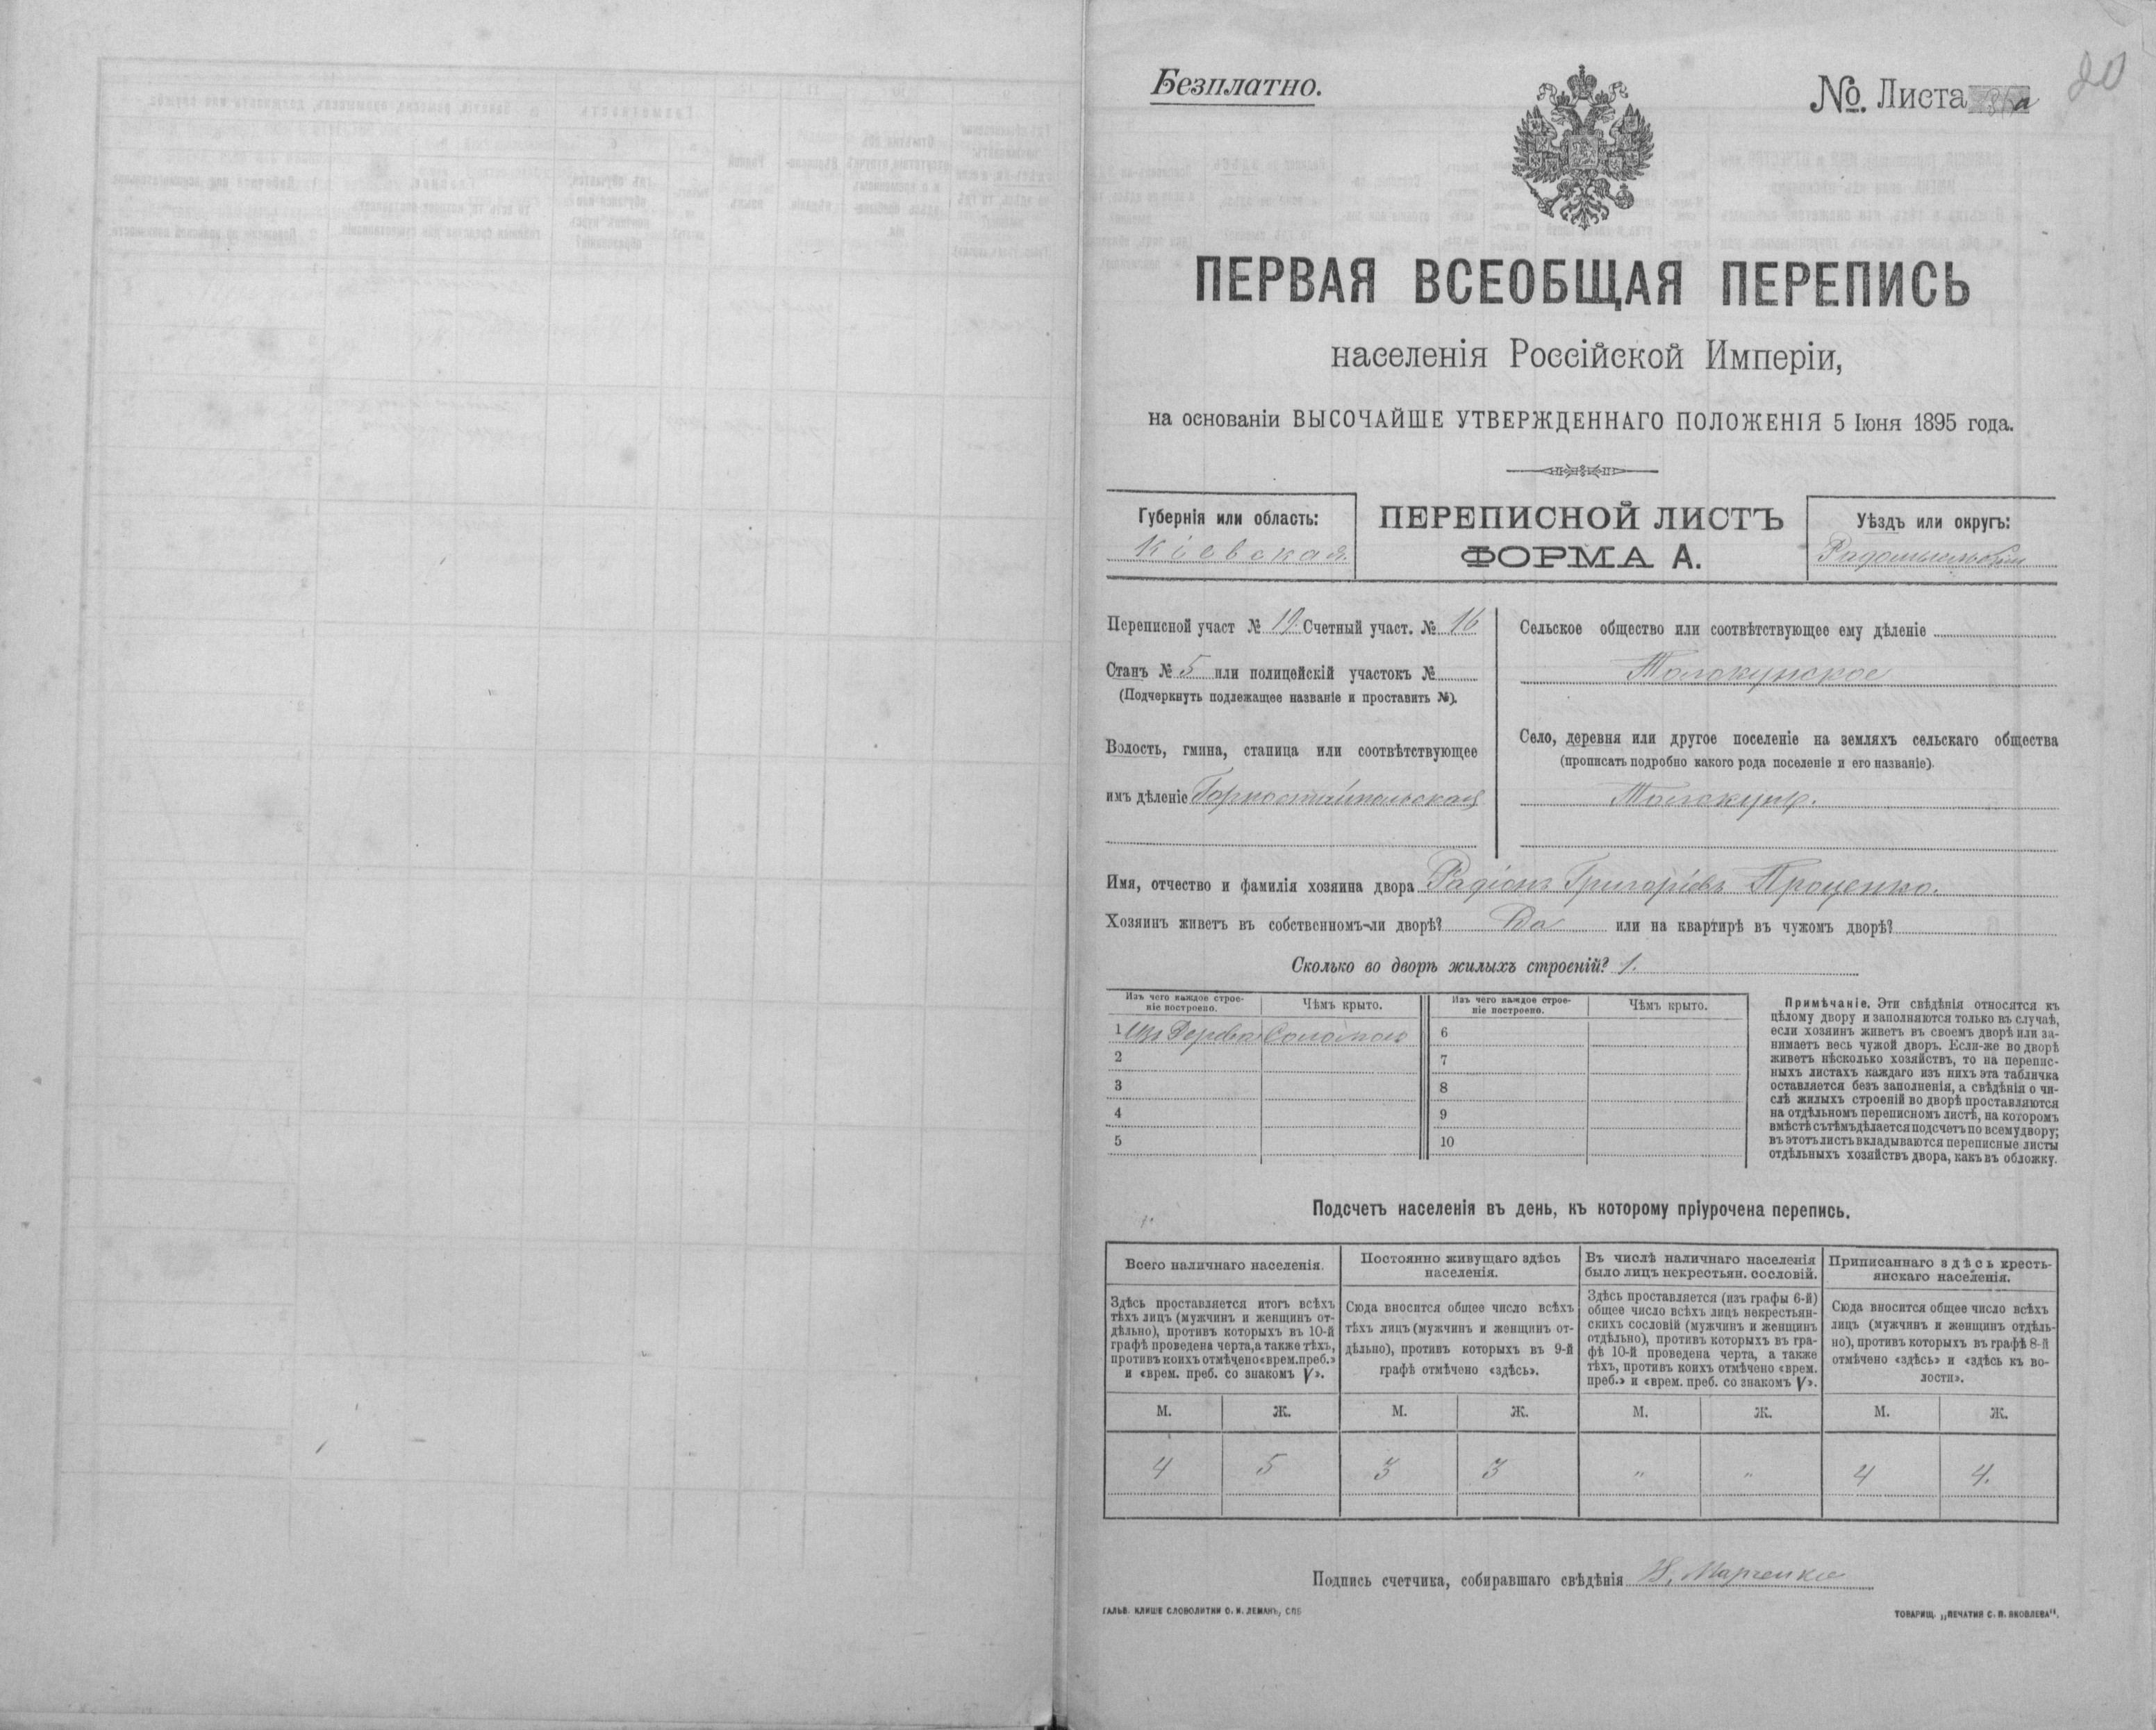 Безплатно.
№. Листа
20
ПЕРВАЯ ВСЕОБЩАЯ ПЕРЕПИСЬ
населенія Россійской Имперіи,
на основаніи ВЫСОЧАЙШЕ УТВЕРЖДЕННАГО ПОЛОЖЕНІЯ 5 Іюня 1895 года.
Губернія или область:
Кіевская.
ПЕРЕПИСНОЙ ЛИСТЪ
ФОРМА А.
Уѣздъ или округъ:
Радомысльскій
Переписной участ № 19. Счетный участ. № 16
Станъ № 5 или полицейскій участокъ №
(Подчеркнуть подлежащее названіе и проставить №).
Волость, гмина, станица или соотвѣтствующее
имъ дѣленіе Горностайпольская
Сельское общество или соотвѣтствующее ему дѣленіе
Толокунское
Село, деревня или другое поселеніе на земляхъ сельскаго общества
(прописать подробно какого рода поселеніе и его названіе).
Толокунь.
Имя, отчество и фамилія хозяина двора Радіонъ Григоріевъ Проценко.
Хозяинъ живетъ въ собственномъ-ли дворѣ? Да или на квартирѣ въ чужомъ дворѣ?
Сколько во дворѣ жилыхъ строеній? 1.
Изъ чего каждое строе-
ніе построено.
Чѣмъ крыто.
Изъ чего каждое строе-
ніе построено.
Чѣмъ крыто.
1 Изъ Дерева Соломою 6
2 7
3 8
4 9
5 10
Примѣчаніе. Эти свѣдѣнія относятся къ
цѣлому двору и заполняются только въ случаѣ,
если хозяинъ живетъ въ своемъ дворѣ или за-
нимаетъ весь чужой дворъ. Если-же во дворѣ
живетъ нѣсколько хозяйствъ, то на перепис-
ныхъ листахъ каждаго изъ нихъ эта табличка
оставляется безъ заполненія, а свѣдѣнія о чи-
слѣ жилыхъ строеній во дворѣ проставляются
на отдѣльномъ переписномъ листѣ, на которомъ
вмѣстѣ съ тѣмъ дѣлается подсчетъ по всему двору;
въ этотъ листъ вкладываются переписные листы
отдѣльныхъ хозяйствъ двора, какъ въ обложку.
Подсчетъ населенія въ день, къ которому пріурочена перепись.
Всего наличнаго населенія.
Постоянно живущаго здѣсь
населенія.
Въ числѣ наличнаго населенія
было лицъ некрестьян. сословій.
Приписаннаго здѣсь кресть-
янскаго населенія.
Здѣсь проставляется итогъ всѣхъ
тѣхъ лицъ (мужчинъ и женщинъ от-
дѣльно), противъ которыхъ въ 10-й
графѣ проведена черта, а также тѣхъ,
противъ коихъ отмѣчено «врем. преб.»
и «врем. преб. со знакомъ V».
Сюда вносится общее число всѣхъ
тѣхъ лицъ (мужчинъ и женщинъ от-
дѣльно), противъ которыхъ въ 9-й
графѣ отмѣчено «здѣсь».
Здѣсь проставляется (изъ графы 6-й)
общее число всѣхъ лицъ некрестьян-
скихъ сословій (мужчинъ и женщинъ
отдѣльно), противъ которыхъ въ гра-
фѣ 10-й проведена черта, а также
тѣхъ, противъ коихъ отмѣчено «врем.
преб.» и «врем. преб. со знакомъ V».
Сюда вносится общее число всѣхъ
лицъ (мужчинъ и женщинъ отдѣль-
но), противъ которыхъ въ графѣ 8-й
отмѣчено «здѣсь» и «здѣсь къ во-
лости».
М. Ж. М. Ж. М. Ж. М. Ж.
4 5 3 3 " " 4 4.
Подпись счетчика, собиравшаго свѣдѣнія Н. Марченко
ГАЛЬВ. КЛИШЕ СЛОВОЛИТНИ О. И. ЛЕМАНЪ, СПБ
ТОВАРИЩ. „ПЕЧАТНЯ С. П. ЯКОВЛЕВА".